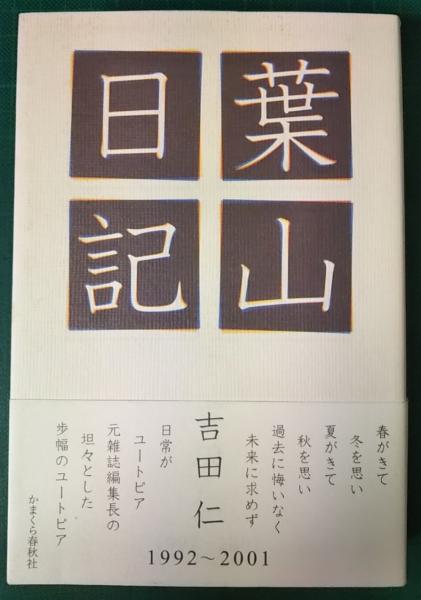 葉山
日記
春がきて
冬を思い
夏がきて
秋を思い
過去に悔いなく
未来に求めず
吉田仁
日常が
ユートピア
元雑誌編集長の
坦々とした
歩幅のユートピア
かまくら春秋社
1992～2001